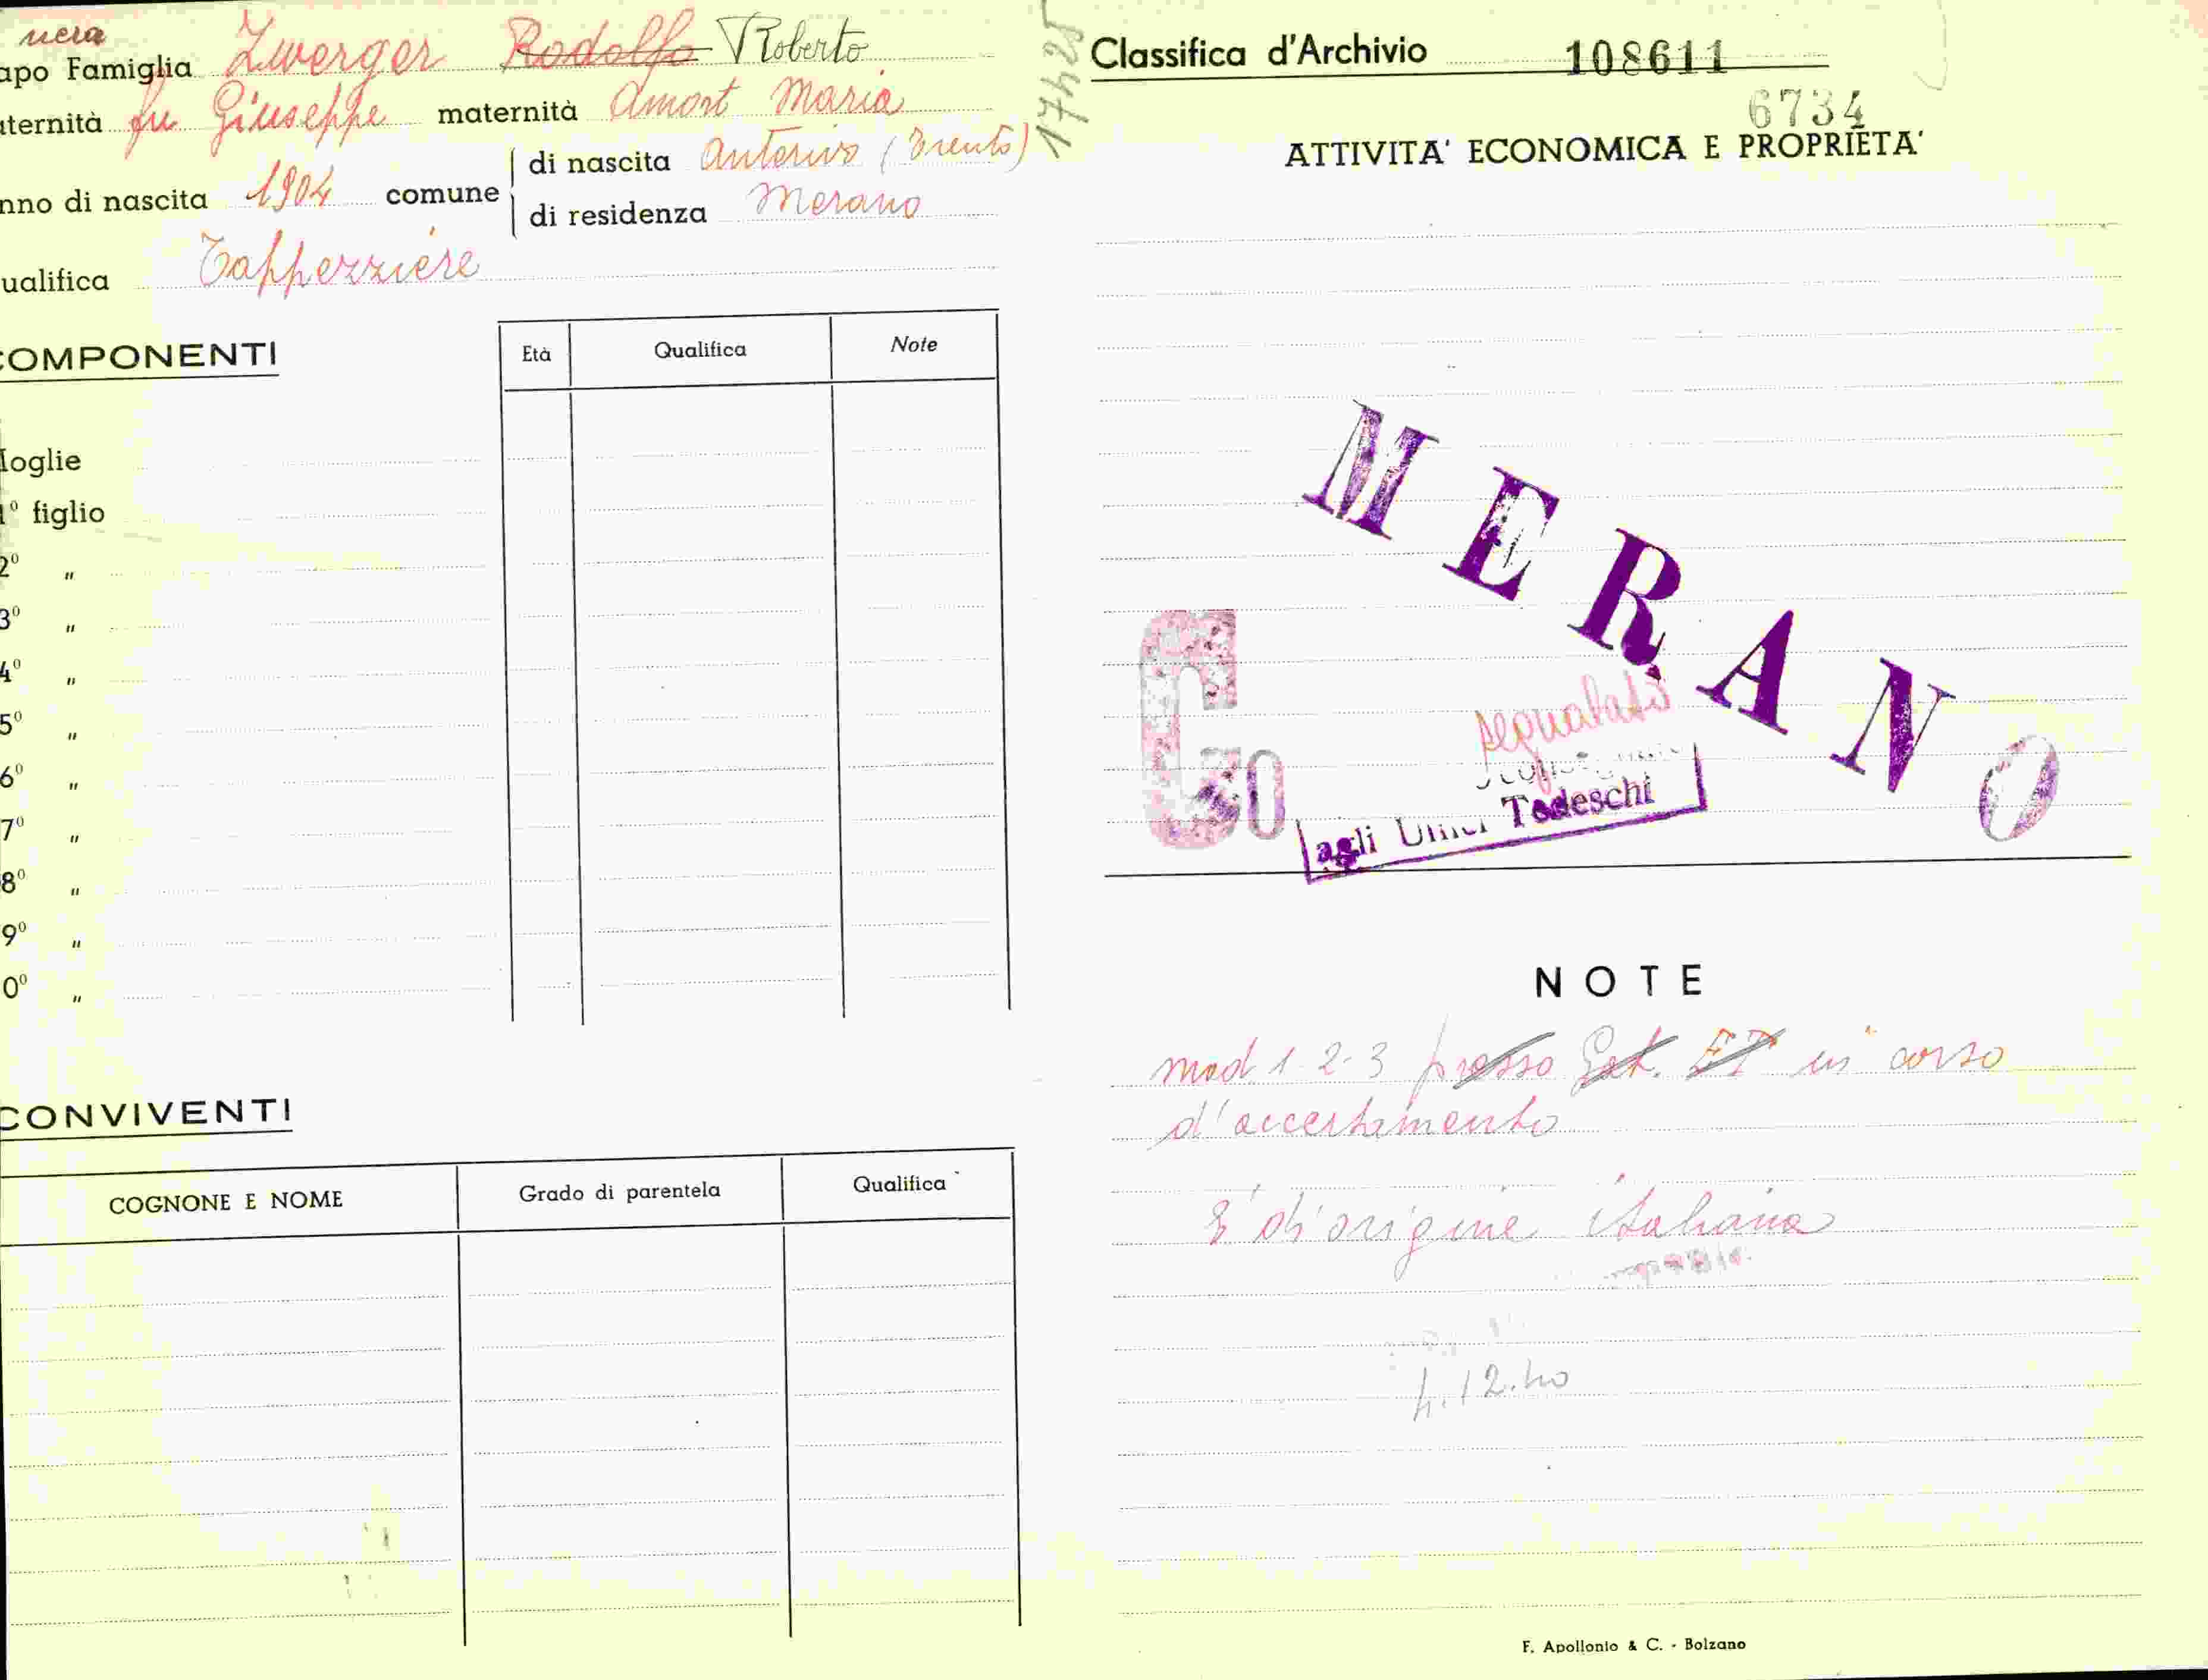 nera
apo Famiglia Zwerger Rodolfo Roberto
aternità fu Giuseppe maternità Amort Maria
nno di nascita 1904 comune di nascita Anterivo (Trento)
di residenza Merano
ualifica Tapperziere
COMPONENTI
Età Qualifica Note
Moglie
1º figlio
2º "
3º "
4º "
5º "
6º "
7º "
8º "
9º "
0º "
CONVIVENTI
COGNONE E NOME Grado di parentela Qualifica
17425
Classifica d'Archivio 108611
6734
ATTIVITA' ECONOMICA E PROPRIETA'
MERANO
G
30
segnalato
agli Uffici Tedeschi
NOTE
mod. 1-2-3 presso in corso
d'accertamento
E' di origine italiana
4.12.40
F. Apollonio & C. - Bolzano